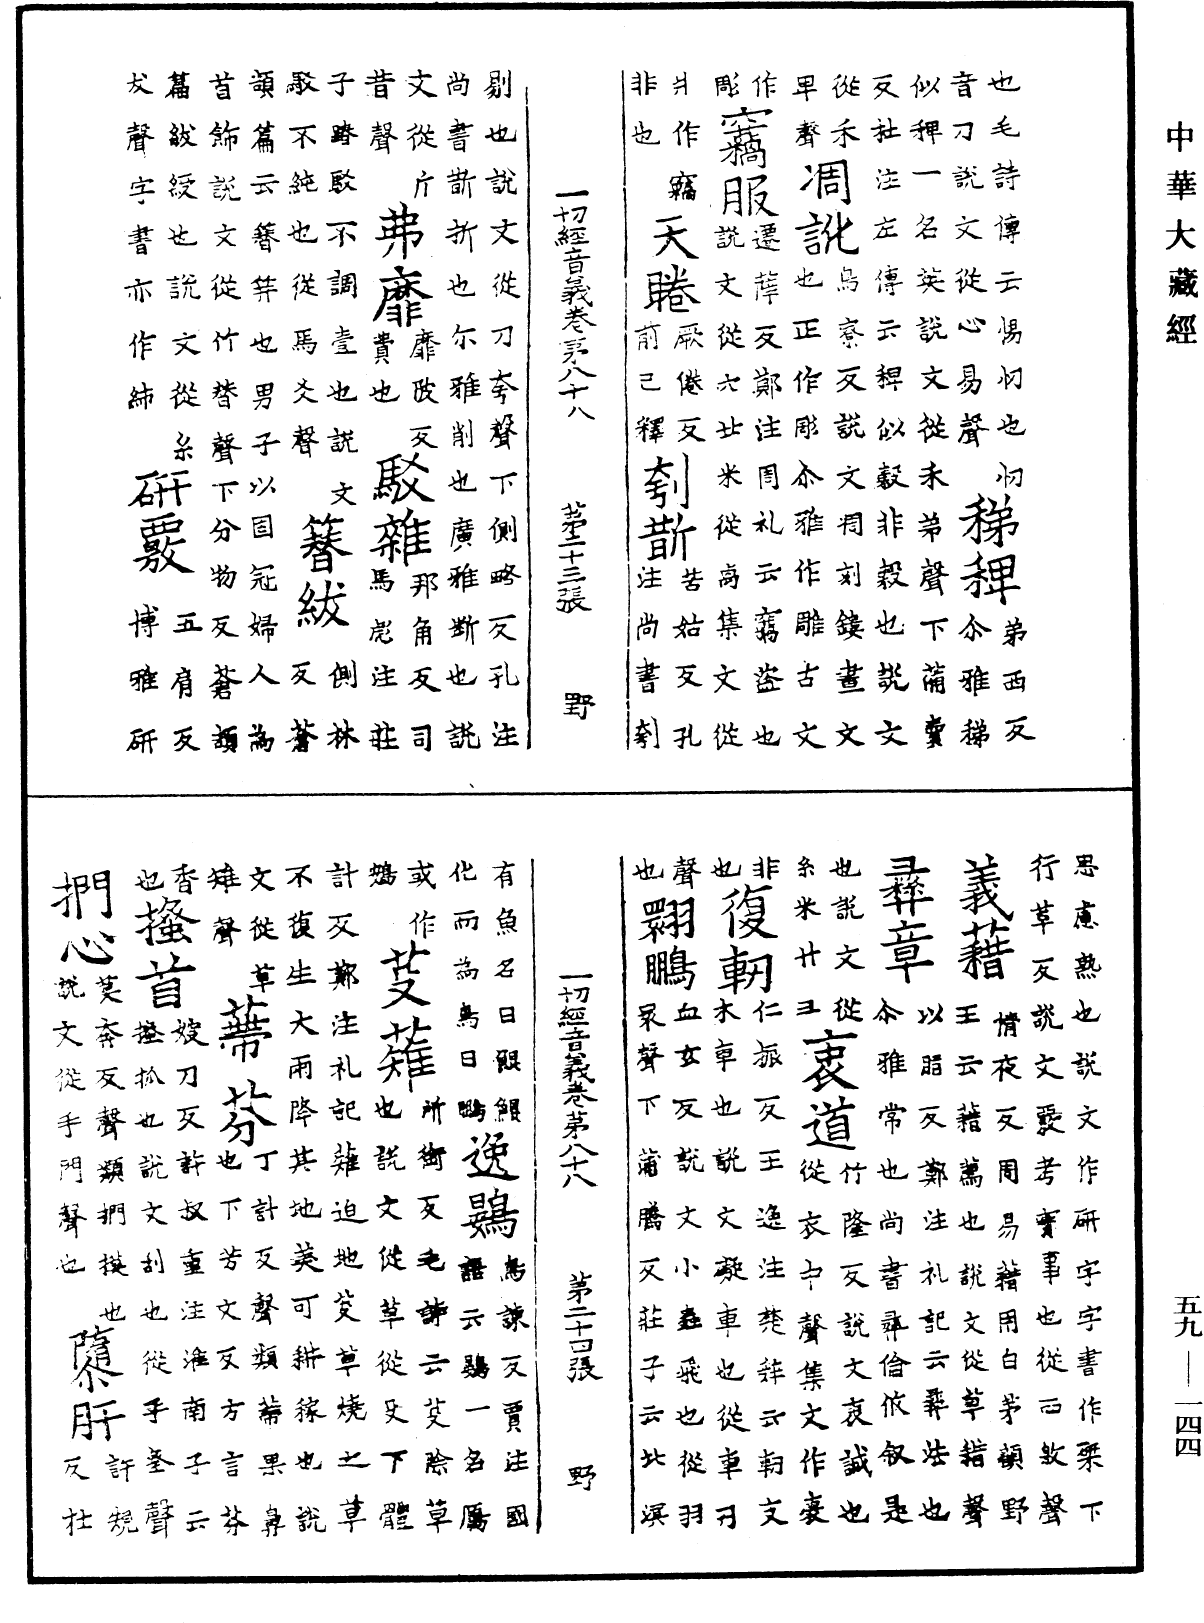 中華大藏經
也毛詩傳云惕忉也忉
音刀說文從心易聲
稊稗
弟西反
尒雅稊
似稗一名英說文從禾弟聲下蒲賣
反杜注左傳云稗似穀非穀也說文
從禾卑聲
凋訛
鳥寮反說文琱刻鏤畫文
也正作彫尒雅作雕古文
作彫
竊服
遷薛反鄭注周礼云竊盜也
說文從穴廿米從卨集文從
廾作竊非也
天睠
厥倦反
前已釋
刳斮
苦姑反孔
注尚書刳
一切經音義卷第八十八 第二十三張 野
剔也說文從刀夸聲下側略反孔注
尚書斮折也尔雅削也廣雅斷也說
文從斤昔聲
弗靡
靡波反
費也
駁雜
邦角反司
馬彪注莊
子踳駁不調壹也說文
駁不純也從馬爻聲
簪紱
側林
反蒼
頡篇云簪笄也男子以固冠婦人為
首飾說文從竹朁聲下分物反蒼頡
篇紱綬也說文從糸
犮聲字書亦作紼
研覈
五肩反
博雅研
思慮熟也說文作研字字書作䂪下
行革反說文覈考實事也從襾敫聲
義藉
情夜反周易藉用白茅韻野
王云藉薦也說文從草耤聲
彞章
以脂反鄭注礼記云彞法也
尒雅常也尚書彞倫攸敘是
也說文從糸米廾彑
衷道
竹隆反說文衷誠也
從衣中聲集文作衺
非也
復軔
仁振反王逸注楚辞云軔支
木車也說文礙車也從車刃
聲也
翾鵬
血玄反說文小蟲飛也從羽
睘聲下蒲騰反莊子云北溟
一切經音義卷第八十八 第二十四張 野
有魚名曰鯤鯤
化而為鳥曰鵬
逸鷃
鳥諫反賈注國
語云鷃一名鴈
或作鴳
芟薙
所銜反毛詩云芟除草
也說文從草從殳下體
計反鄭注礼記薙迫地芟草燒之草
不復生大雨降其地美可耕稼也說
文從草雉聲
蔕芬
丁計反聲類蔕果鼻
也下芳文反方言芬
香也
搔首
嫂刀反許叔重注淮南子云
搔抓也說文刮也從手蚤聲
捫心
莫奔反聲類捫摸也
說文從手門聲也
隳肝
許規
反杜
五九—一四四